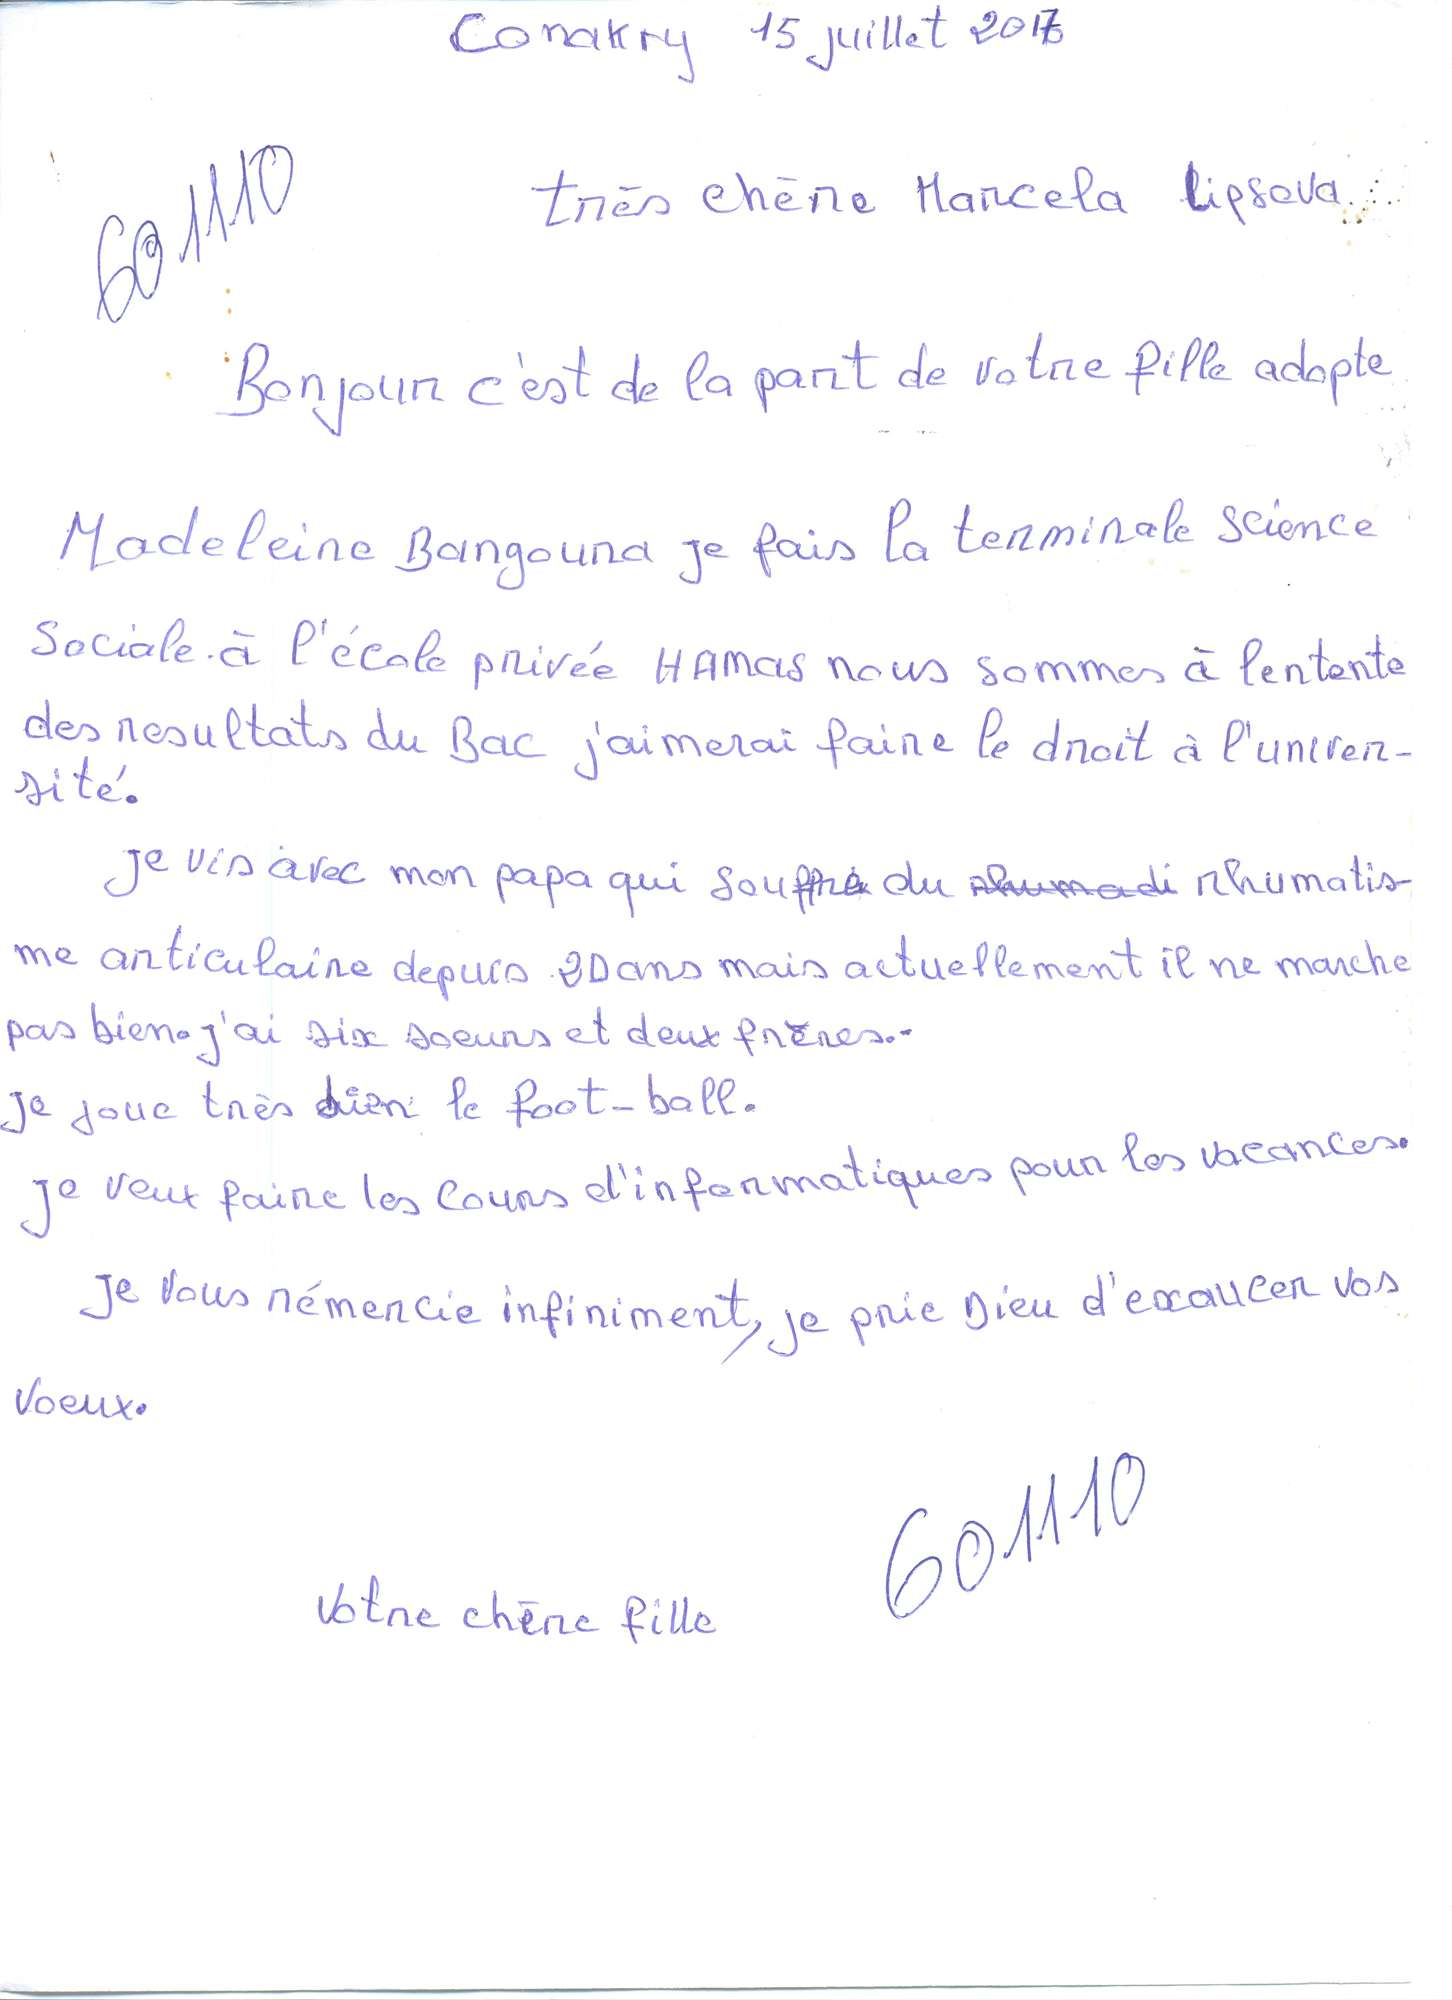 Conakry 15 juillet 2016
601110
très chère Marcela Lipsova
Bonjour c'est de la part de votre fille adopte
Madeleine Bangoura je fais la terminale science
Sociale à l'école privée HAMAS nous sommes à lentente
des resultats du Bac j'aimerai faire le droit à l'univer-
sité.
je vis avec mon papa qui souffre du rhumatis-
me articulaire depuis 20ans mais actuellement il ne marche
pas bien. j'ai six soeurs et deux frères.-
je joue très bien le foot-ball.
je veux faire les cours d'informatiques pour les vacances.
je vous rémercie infiniment, je prie Dieu d'exaucer vos
voeux.
601110
votre chère fille